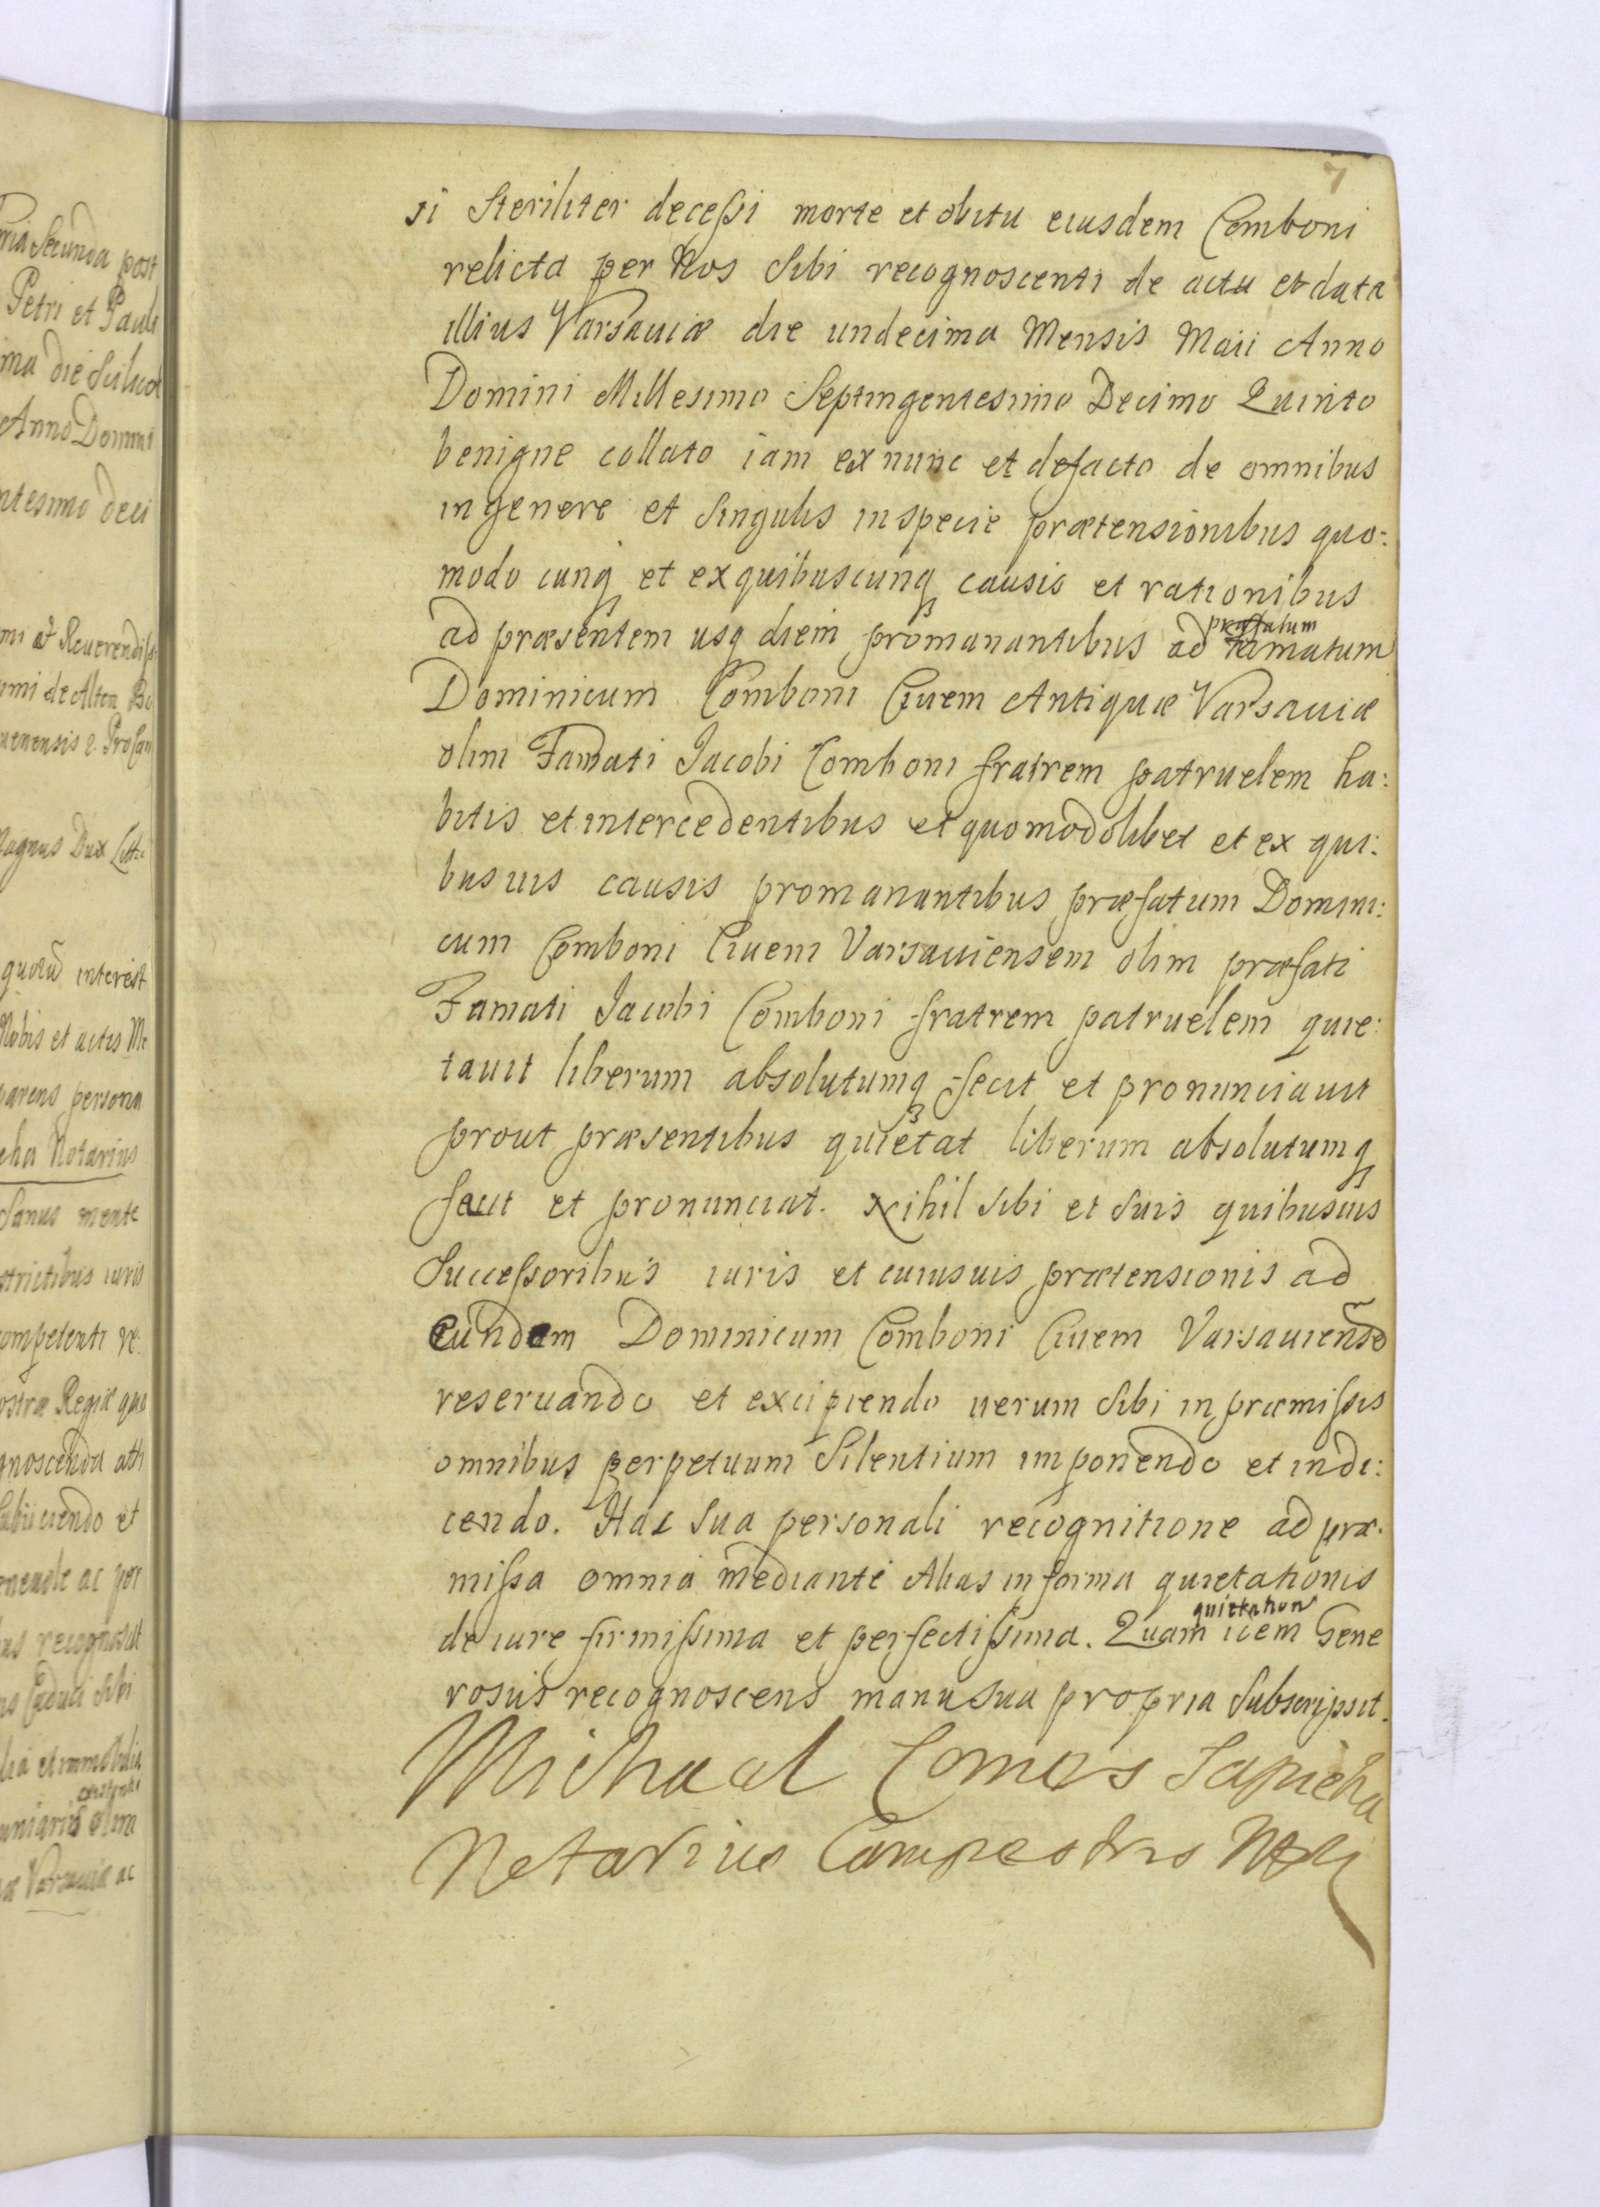 7
si steriliter decessi morte et obitu eiusdem Comboni
relicta per Nos sibi recognoscenti de actu et data
illius Varsaviæ die undecima Mensis Maii Anno
Domini Millesimo Septingentesimo Decimo Quinto
benigne collato iam ex nunc et defacto de omnibus
in genere et singulis in specie prætensionibus quo:
modo cunq et ex quibuscunq causis et rationibus
ad præsentem usq diem promanantibus ad præfatum famatum
Dominicum Comboni Civem Antiquæ Varsaviæ
olim Famati Iacobi Comboni fratrem patruelem ha:
bitis et intercedentibus et quomodolibet et ex qui:
busvis causis promanantibus præfatum Domini:
cum Comboni Civem Varsaviensem olim præfati
Famati Iacobi Comboni fratrem patruelem quie:
tavit liberum absolutumq fecit et pronunciavit
prout præsentibus quietat liberum absolutumq
facit et pronunciat. Nihil sibi et suis quibusvis
Successoribus iuris et cuiusvis prætensionis ad
eundem Dominicum Comboni Civem Varsaviense
reservando et excipiendo verum sibi in præmissis
omnibus perpetuum silentium imponendo et indi:
cendo. Hac sua personali recognitione ad præ:
missa omnia mediante Alias in forma quietationis
de iure firmissima et perfectissima. Quam quietation idem Gene
rosus recognoscens manu sua propria subscripsit.
Michael Comes Sapieha
Notarius Campestris
ria Secunda post
Petri et Pauli
ma die
Anno Domini
ntesimo deci
ni et Reverendiss
mi de Alten Bo
Magnus Dux Litt:
quorũ interest
Nobis et actis Me
parens persona
eha Notarius
Sanus mente
strictibus iuris
competenti re:
ostræ Regiæ quo
gnoscenda
subiiciendo et
ac per
us recognoscit
Caduci sibi
lia et immobilia
olim
æ Varsaviæ ac